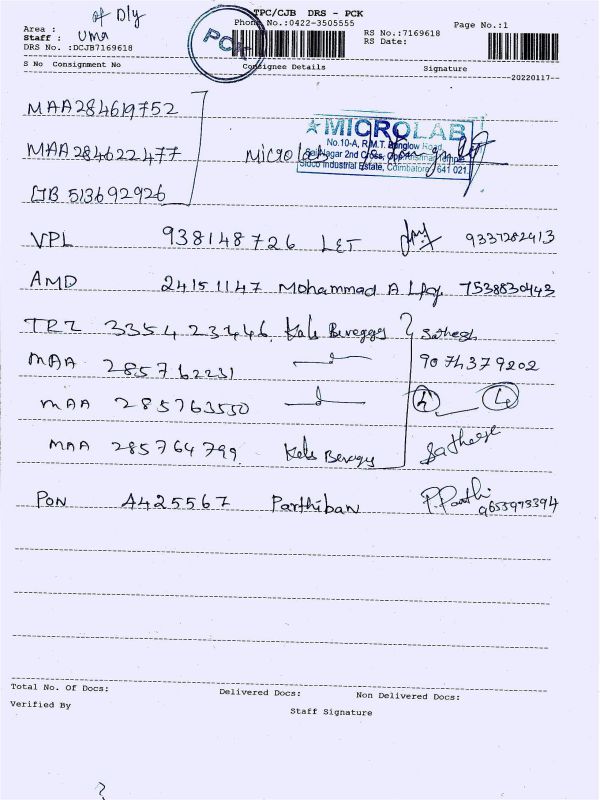 of Dly
TPC/CJB DRS - PCK
Area :
Phone No.:0422-3505555
Page No.:1
Staff : Uma
RS No.:7169618
DRS No. :DCJB7169618
RS Date:
PCK
S No Consignment No Consignee Details Signature
20220117
MAA284619752
MICROLAB
No.10-A, R.M.T. Bunglow Road,
MAA284622477 Micro lab
Sai Nagar 2nd Cross,
Sidco Industrial Estate, Coimbatore - 641 021.
CJB 513692926
VPL 938148726 LET 9337282413
AMD 24151147 Mohammad A 7538830443
TRZ 335423446 Kals Sathesh
MAA 285762231 9074379202
MAA 285763550 4 4
MAA 285764799 Kals Sathesh
PON A4425567 Parthiban P.Parthi
9653973394
Total No. Of Docs: Delivered Docs: Non Delivered Docs:
Verified By Staff Signature